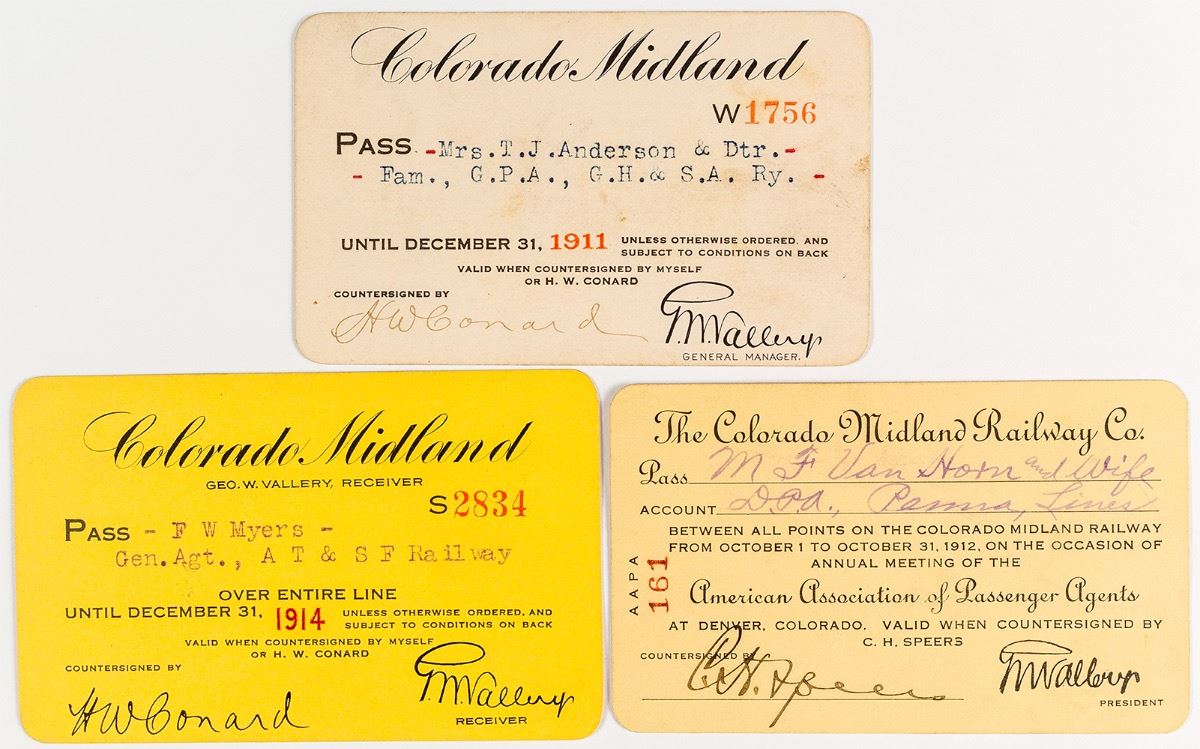 Colorado Midland
W1756
PASS -Mrs.T.J.Anderson & Dtr.-
- Fam., G.P.A., G.H.& S.A. Ry. -
UNTIL DECEMBER 31, 1911 UNLESS OTHERWISE ORDERED, AND
SUBJECT TO CONDITIONS ON BACK
VALID WHEN COUNTERSIGNED BY MYSELF
OR H. W. CONARD
COUNTERSIGNED BY
HWConard
G.W.Vallery
GENERAL MANAGER.
Colorado Midland
GEO. W. VALLERY, RECEIVER
S2834
PASS - F W Myers -
Gen.Agt., A T & S F Railway
OVER ENTIRE LINE
UNTIL DECEMBER 31, 1914 UNLESS OTHERWISE ORDERED, AND
SUBJECT TO CONDITIONS ON BACK
VALID WHEN COUNTERSIGNED BY MYSELF
OR H. W. CONARD
COUNTERSIGNED BY
HWConard
G.W.Vallery
RECEIVER
The Colorado Midland Railway Co.
Pass M F Van Horn and Wife
ACCOUNT D.P.A., Penna, Lines
BETWEEN ALL POINTS ON THE COLORADO MIDLAND RAILWAY
FROM OCTOBER 1 TO OCTOBER 31, 1912, ON THE OCCASION OF
ANNUAL MEETING OF THE
American Association of Passenger Agents
AT DENVER, COLORADO. VALID WHEN COUNTERSIGNED BY
C. H. SPEERS
AAPA
161
COUNTERSIGNED BY
C.H. Speers
G.W.Vallery
PRESIDENT